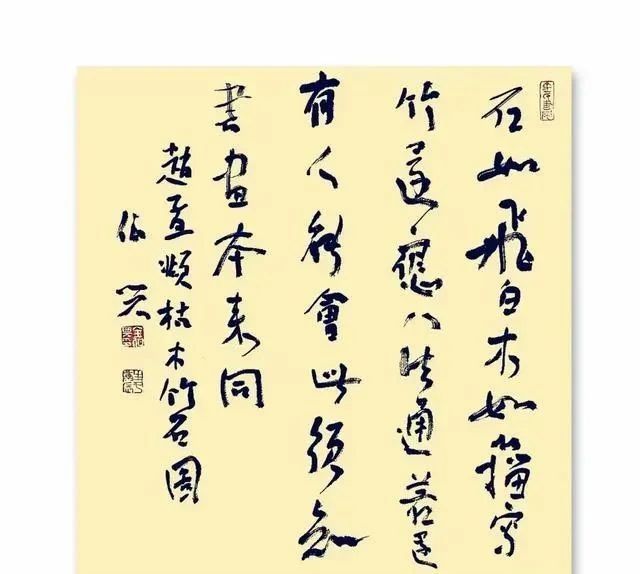 石如飛白木如籀寫
竹還應八法通若還
有人能會此須知
書畫本來同
趙孟頫枯木竹石圖